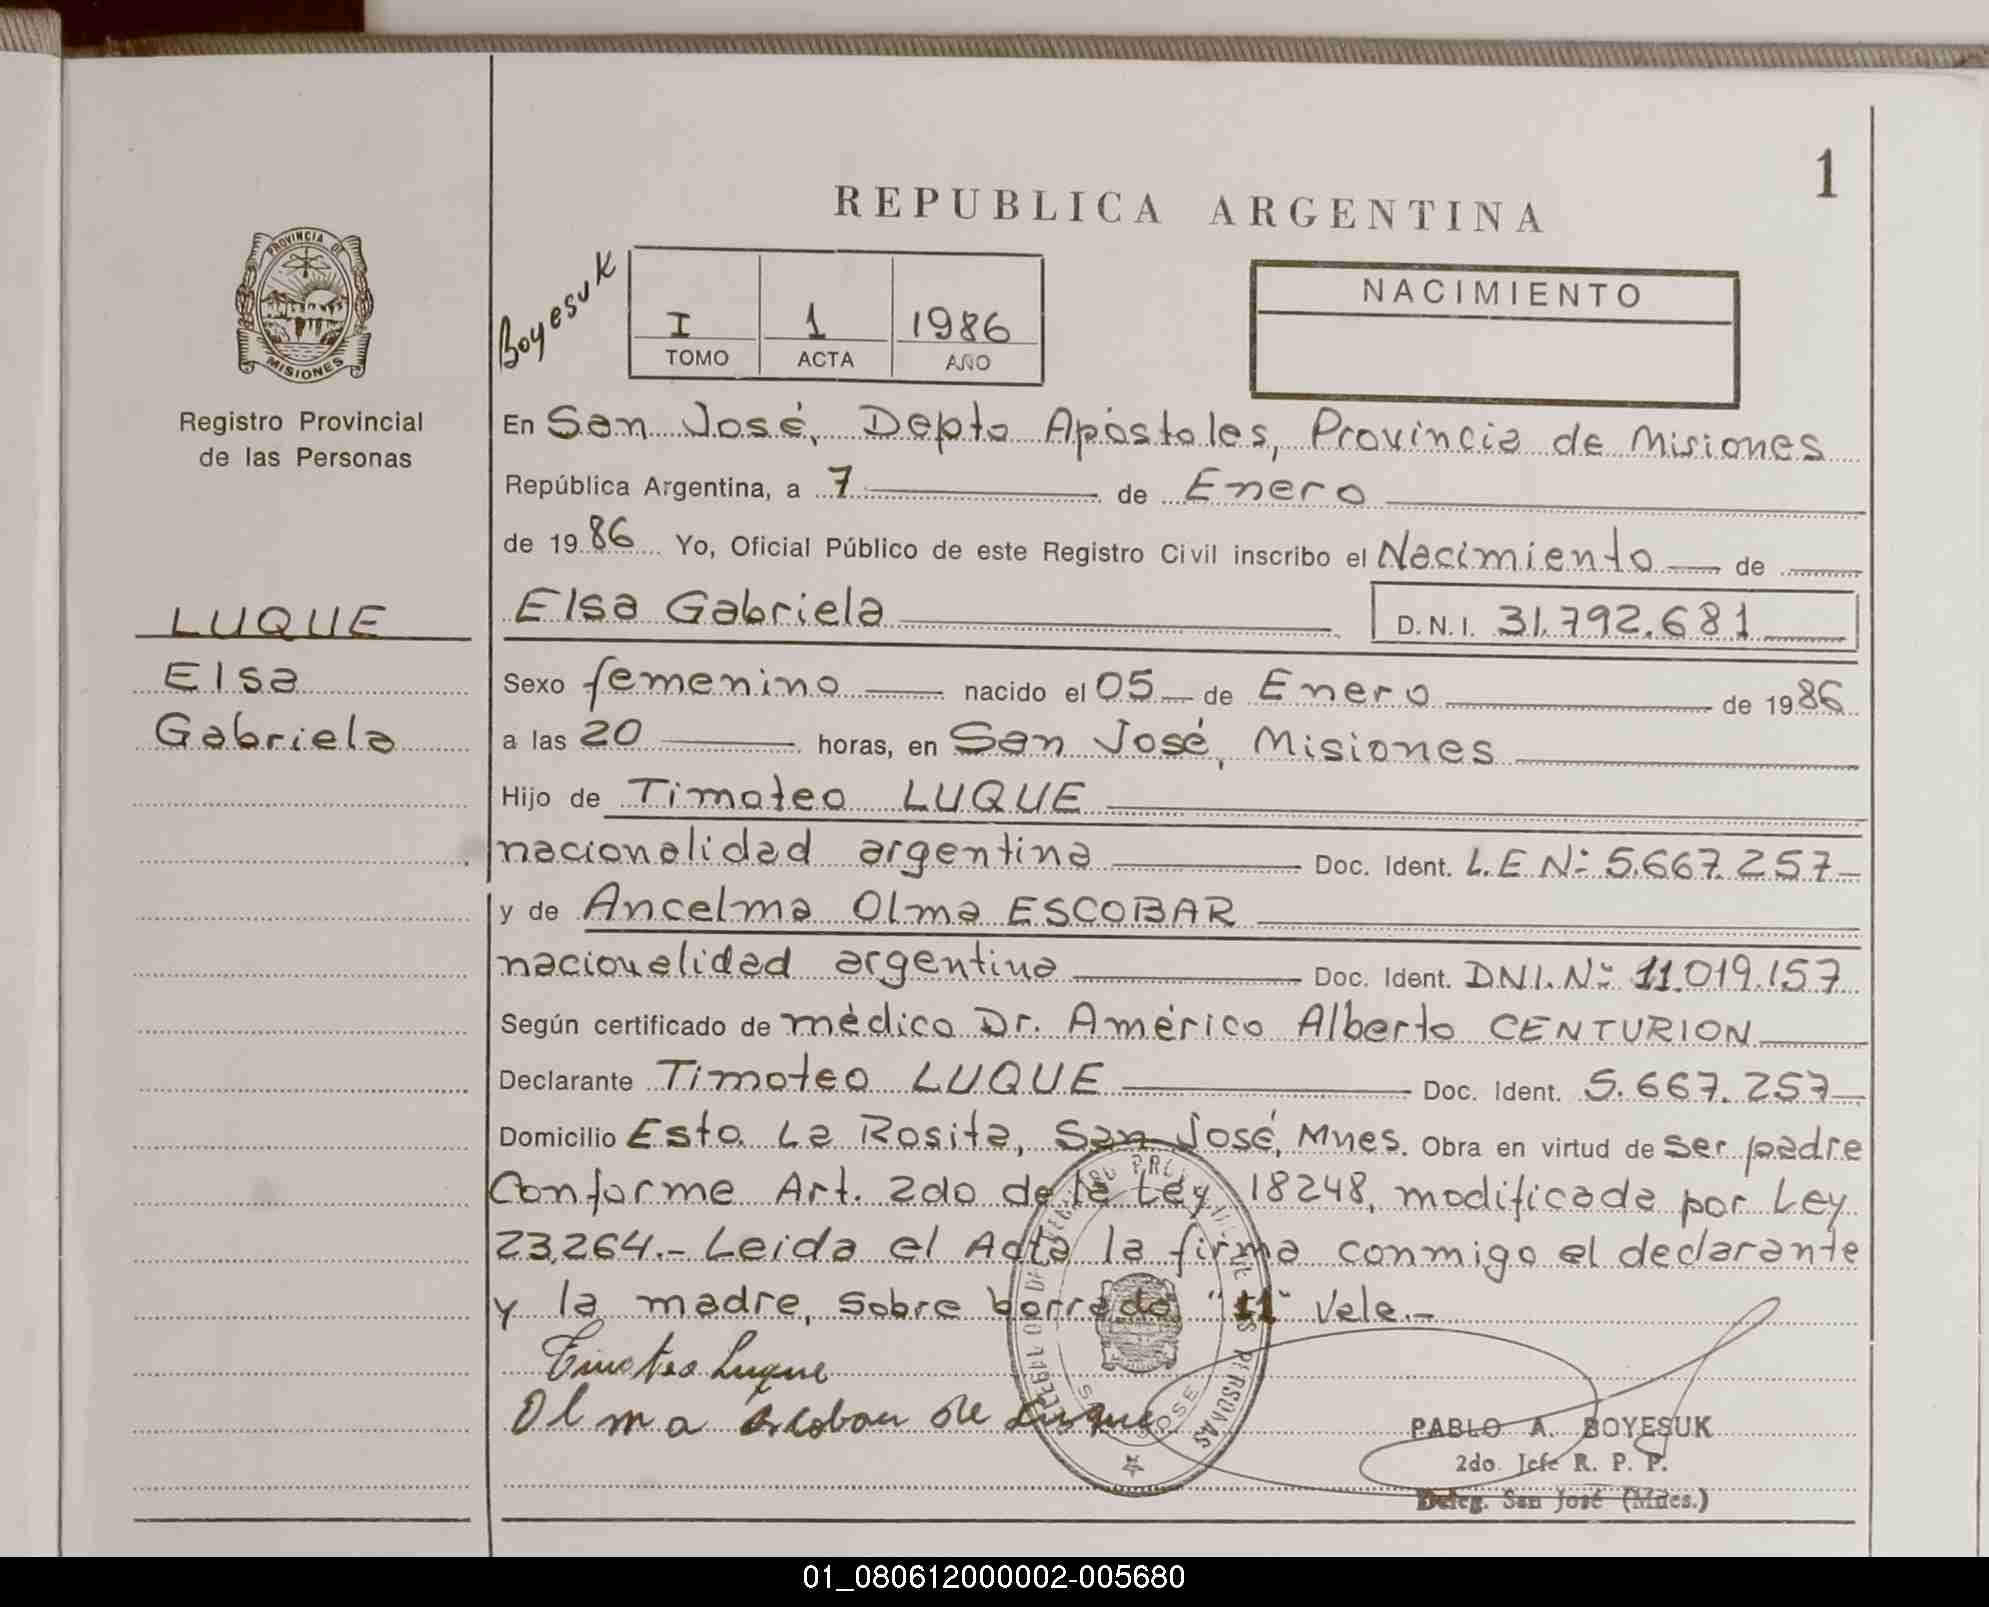 1
REPUBLICA ARGENTINA
PROVINCIA DE
MISIONES
Registro Provincial
de las Personas
Boyesuk
I 1 1986
TOMO ACTA AÑO
NACIMIENTO
En San José, Depto Apóstoles, Provincia de Misiones
República Argentina, a 7 de Enero
de 1986 Yo, Oficial Público de este Registro Civil inscribo el Nacimiento de
LUQUE
Elsa
Gabriela
Elsa Gabriela D.N.I. 31.792.681
Sexo femenino nacido el 05 de Enero de 1986
a las 20 horas, en San José, Misiones
Hijo de Timoteo LUQUE
nacionalidad argentina Doc. Ident. L.E.Nº: 5.667.257
y de Ancelma Olma ESCOBAR
nacionalidad argentina Doc. Ident. DNI.Nº: 11.019.157
Según certificado de médico Dr. Américo Alberto CENTURION
Declarante Timoteo LUQUE Doc. Ident. 5.667.257
Domicilio Esta. La Rosita, San José, Mnes. Obra en virtud de ser padre
Conforme Art. 2do de la Ley 18248, modificada por Ley
23.264.- Leida el Acta la firma conmigo el declarante
y la madre, sobre borrado "11" Vale.-
Timoteo Luque
Olma Escobar de Luque
SAN JOSE
PABLO A. BOYESUK
2do. Jefe R. P. P.
Deleg. San José (Mnes.)
01_080612000002-005680